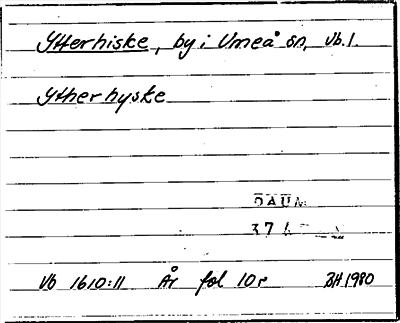 Ytterhiske, by i Umeå sn, Vb.l.
Ytherhyske
DAUM
Vb 1610:11 År fol 10r BH 1980